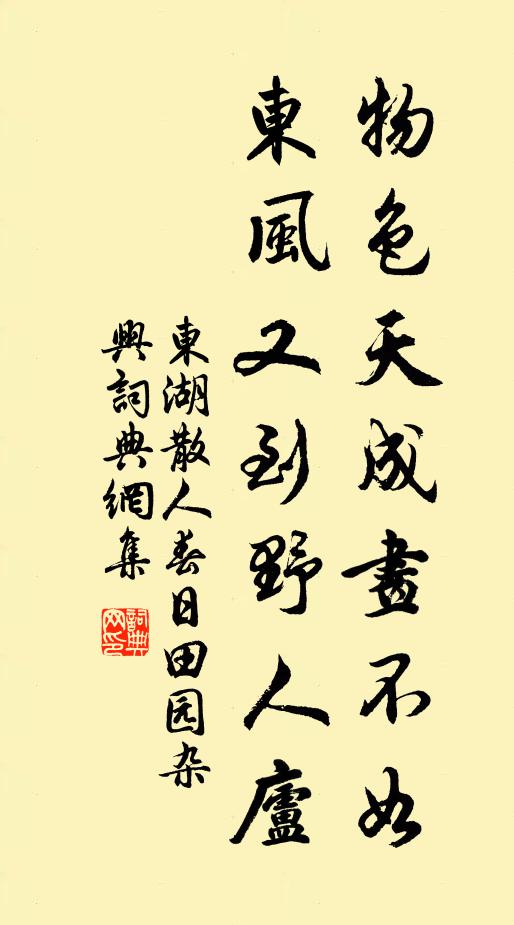 物色天成畫不如
東風又到野人廬
東湖散人春日田园杂
興詞典網集
詞典
网印